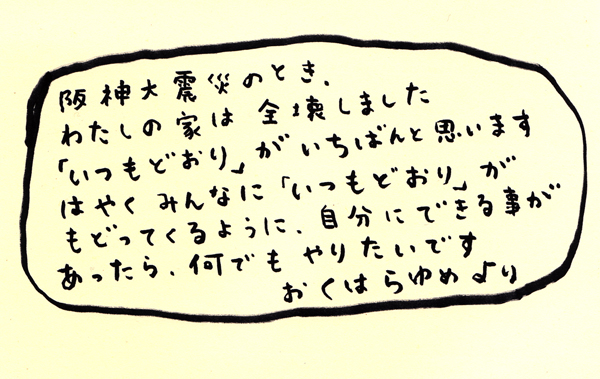 阪神大震災のとき、
わたしの家は 全壊しました
「いつもどおり」がいちばんと思います
はやく みんなに「いつもどおり」が
もどってくるように、自分にできる事が
あったら、何でも やりたいです
おくはらゆめ より